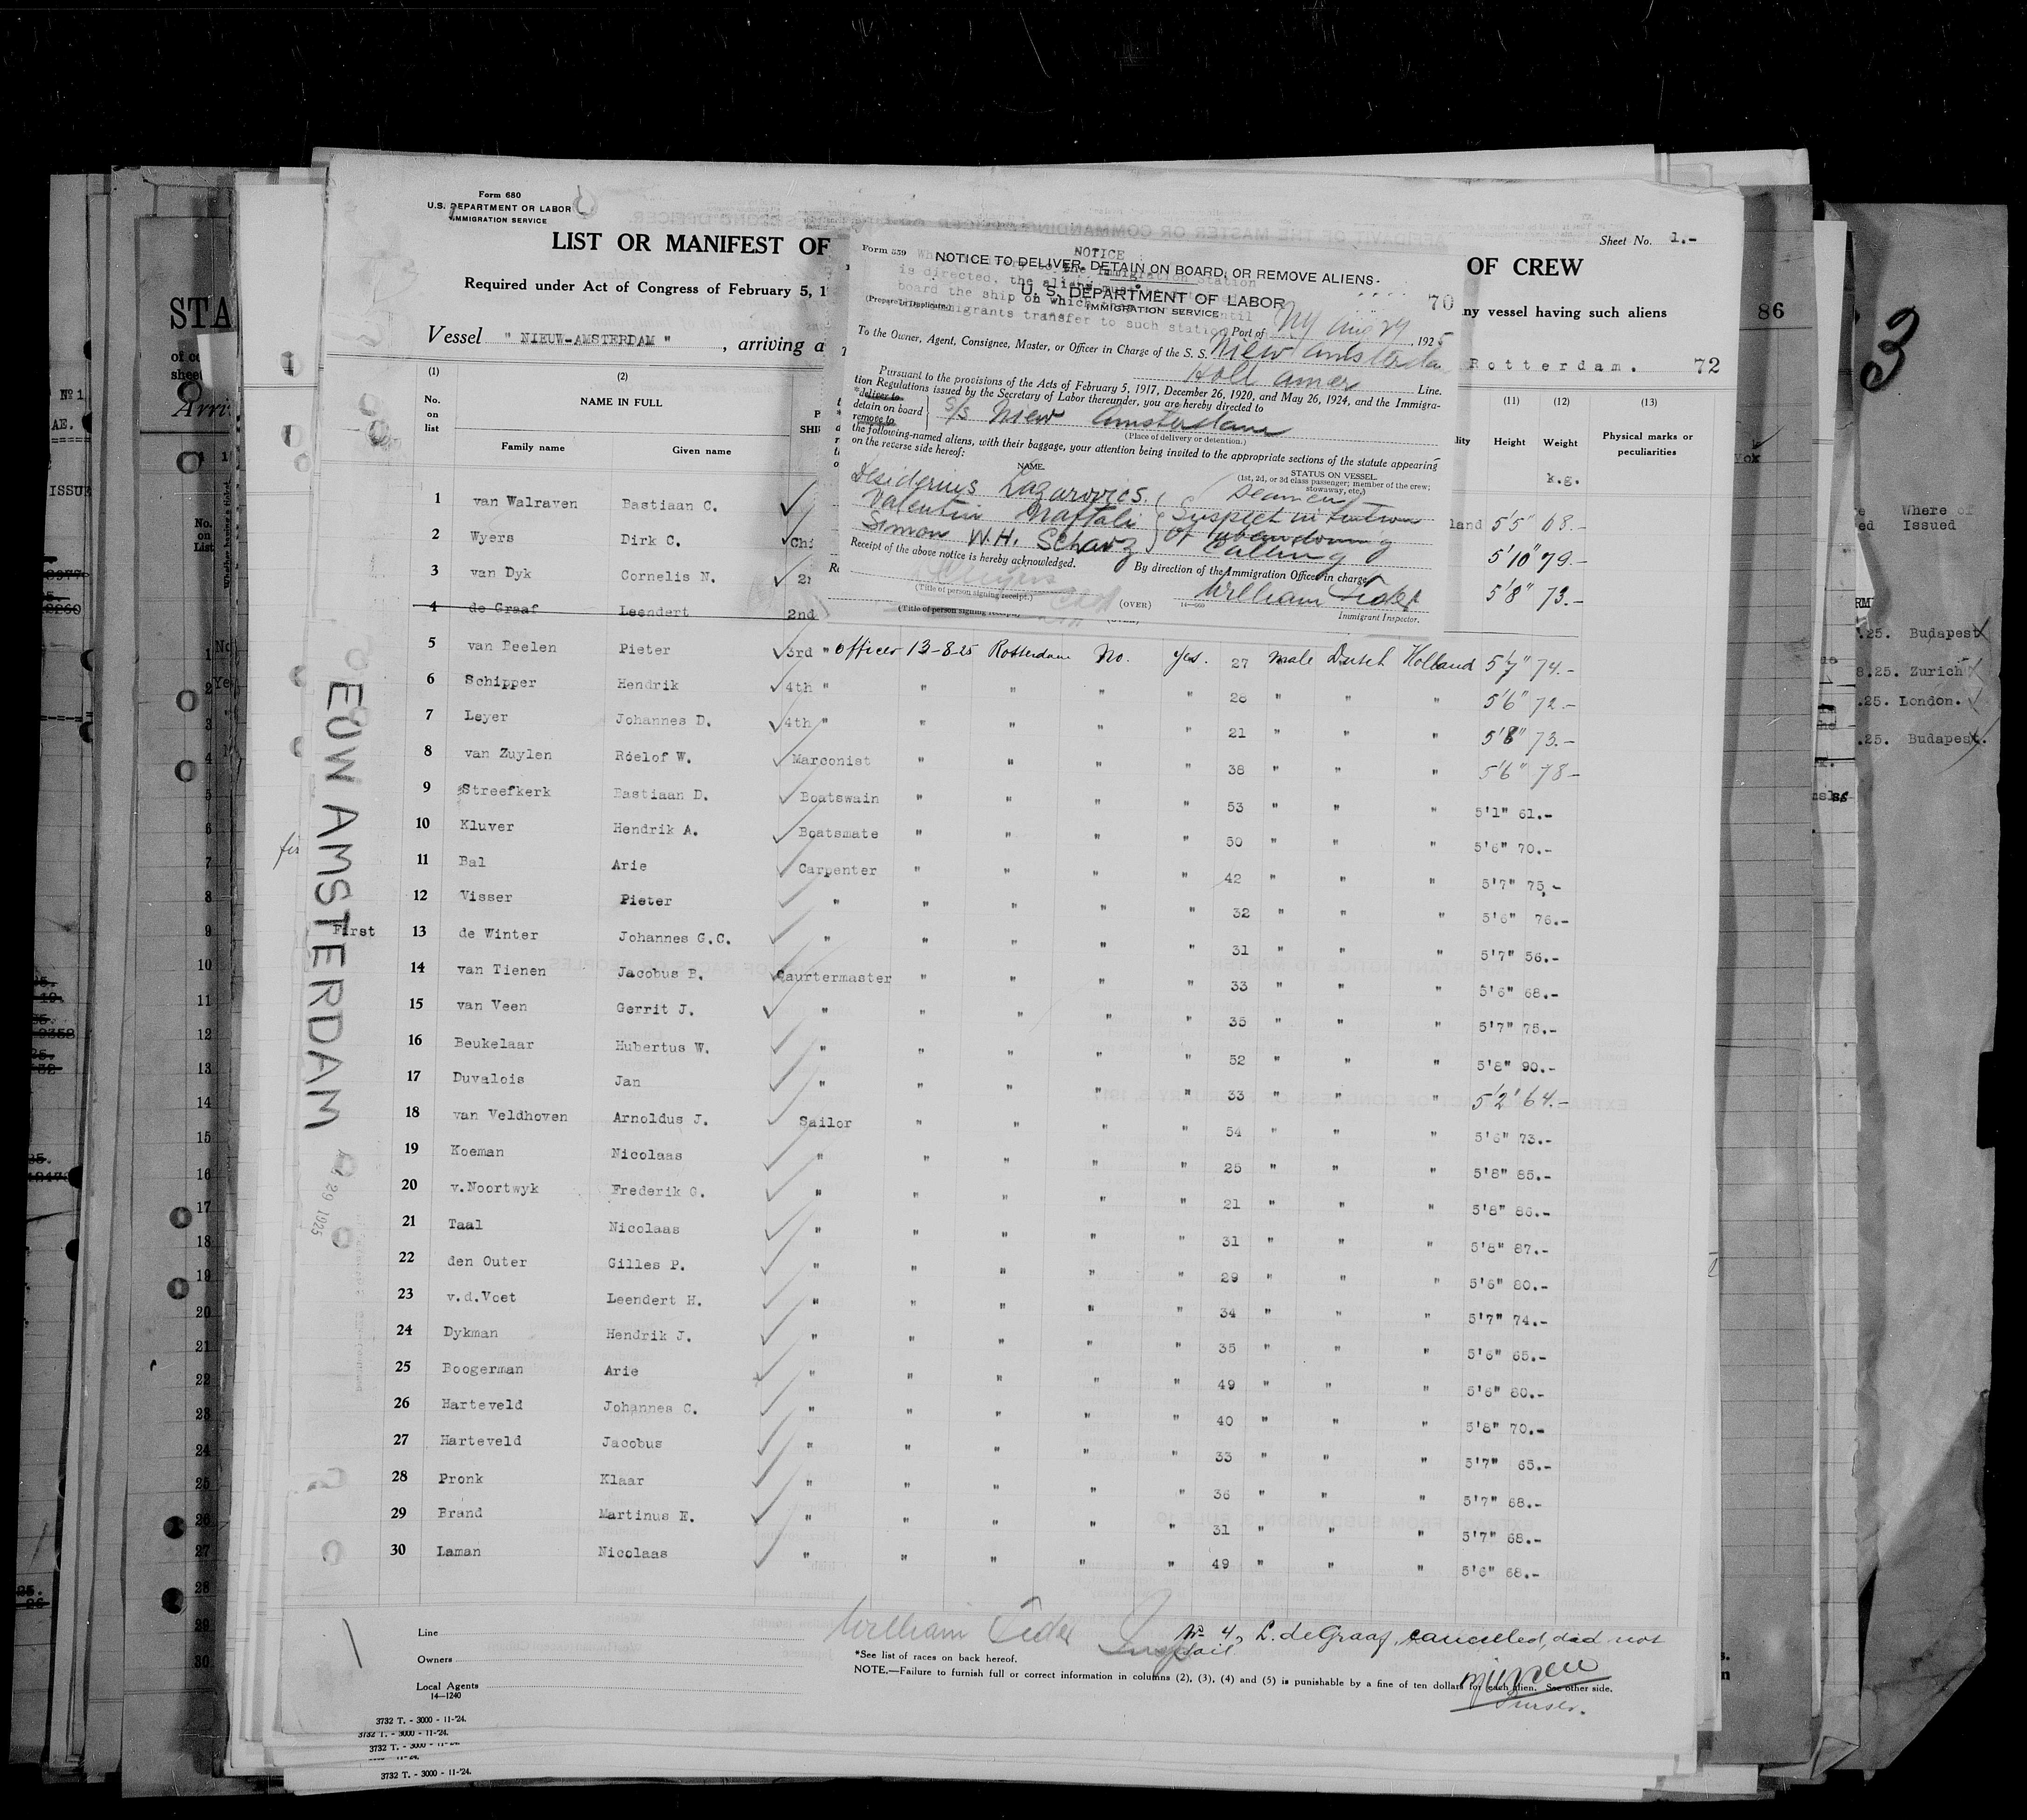 Form 680
U.S. DEPARTMENT OR LABOR
IMMIGRATION SERVICE
LIST OR MANIFEST OF
OF CREW
Sheet No. 1.-
Required under Act of Congress of February 5, 1
ny vessel having such aliens
Vessel " NIEUW-AMSTERDAM " , arriving a
Rotterdam. 72
Form 859
NOTICE
NOTICE TO DELIVER, DETAIN ON BOARD, OR REMOVE ALIENS.
U. S. DEPARTMENT OF LABOR
IMMIGRATION SERVICE
70
(Prepare in Duplicate)
Port of NY Aug 29, 1925
To the Owner, Agent, Consignee, Master, or Officer in Charge of the S. S. New Amsterdam
Holl Amer Line.
Pursuant to the provisions of the Acts of February 5, 1917, December 26, 1920, and May 26, 1924, and the Immigra-
tion Regulations issued by the Secretary of Labor thereunder, you are hereby directed to
*deliver to
detain on board S/s New Amsterdam
remove to
(Place of delivery or detention.)
the following-named aliens, with their baggage, your attention being invited to the appropriate sections of the statute appearing
on the reverse side hereof:
NAME. STATUS ON VESSEL.
(1st, 2d, or 3d class passenger; member of the crew;
stowaway, etc.)
Desiderius Lazarovics. Seamen
Valentin Naftali Suspect intention
Simon W.H. Schwarz of abandoning
calling
Receipt of the above notice is hereby acknowledged. By direction of the Immigration Officer in charge,
William Eider
(Title of person signing receipt.)
(OVER)
Immigrant Inspector.
(Title of person signing receipt.)
(1) (2) (11) (12) (13)
No. on list NAME IN FULL Height Weight Physical marks or peculiarities
Family name Given name k.g.
1 van Walraven Bastiaan C. land 5'5" 68.-
2 Wyers Dirk C. Chi 5'10" 79.-
3 van Dyk Cornelis N. 5'8" 73.-
4 de Graaf Leendert 2nd
5 van Beelen Pieter 3rd " officer 13-8-25 Rotterdam No. yes. 27 male Dutch Holland 5'7" 74.-
6 Schipper Hendrik 4th " " " " " 28 " " " 5'6" 72.-
7 Leyer Johannes D. 4th " " " " " 21 " " " 5'8" 73.-
8 van Zuylen Roelof W. Marconist " " " " 38 " " " 5'6" 78-
9 Streefkerk Bastiaan D. Boatswain " " " " 53 " " " 5'1" 61.-
10 Kluver Hendrik A. Boatsmate " " " " 50 " " " 5'6" 70.-
11 Bal Arie Carpenter " " " " 42 " " " 5'7" 75.-
12 Visser Pieter " " " " " 32 " " " 5'6" 76.-
13 de Winter Johannes G.C. " " " " " 31 " " " 5'7" 56.-
14 van Tienen Jacobus B. Qaurtermaster " " " " 33 " " " 5'6" 68.-
15 van Veen Gerrit J. " " " " " 35 " " " 5'7" 75.-
16 Beukelaar Hubertus W. " " " " " 52 " " " 5'8" 90.-
17 Duvalois Jan " " " " " 33 " " " 5'2" 64.-
18 van Veldhoven Arnoldus J. Sailor " " " " 54 " " " 5'6" 73.-
19 Koeman Nicolaas " " " " " 25 " " " 5'8" 85.-
20 v.Noortwyk Frederik G. " " " " " 21 " " " 5'8" 86.-
21 Taal Nicolaas " " " " " 31 " " " 5'8" 87.-
22 den Outer Gilles P. " " " " " 29 " " " 5'6" 80.-
23 v.d.Voet Leendert H. " " " " " 34 " " " 5'7" 74.-
24 Dykman Hendrik J. " " " " " 35 " " " 5'6" 65.-
25 Boogerman Arie " " " " " 49 " " " 5'6" 80.-
26 Harteveld Johannes C. " " " " " 40 " " " 5'8" 70.-
27 Harteveld Jacobus " " " " " 33 " " " 5'7" 65.-
28 Pronk Klaar " " " " " 36 " " " 5'7" 68.-
29 Brand Martinus E. " " " " " 31 " " " 5'7" 68.-
30 Laman Nicolaas " " " " " 49 " " " 5'6" 68.-
First
NIEUW AMSTERDAM
29 1925
Line
William Eider Insp
No 4, L. de Graaf, cancelled, did not
sail.
Owners
*See list of races on back hereof.
NOTE.—Failure to furnish full or correct information in columns (2), (3), (4) and (5) is punishable by a fine of ten dollars for each alien. See other side.
Purser.
Local Agents
14—1240
3732 T. - 3000 - 11-'24.
3732 T. - 3000 - 11-'24.
3732 T. - 3000 - 11-'24.
3732 T. - 3000 - 11-'24.
STA
Arri
ISSUE
86
3
Where of
Issued
.25. Budapest
8.25. Zurich
.25. London.
.25. Budapest.